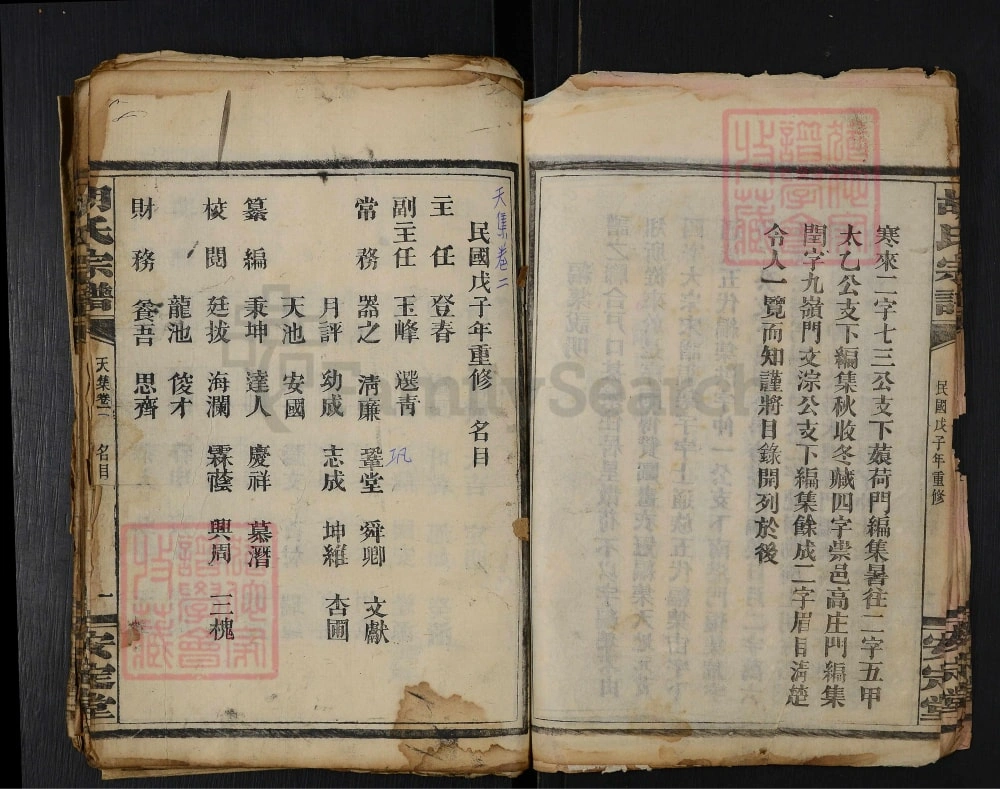 胡氏宗譜
民國戊子年重修
安定堂
寒來二字七三公支下蘋荷門編集暑往二字五甲
太乙公支下編集秋收冬藏四字祟邑高庄門編集
閏字九嶺門文淙公支下編集餘成二字眉目清楚
令人一覽而知謹將目錄開列於後
天集卷二
民國戊子年重修 名目
主任 登春
副主任 玉峰 選青 巩
常務 器之 清廉 鞏堂 舜卿 文獻
月評 幼成 志成 坤維 杏圃
天池 安國
纂編 秉坤 達人 慶祥 慕潛
校閱 廷拔 海瀾 霖蔭 興周 三槐
龍池 俊才
財務 養吾 思齊
胡氏宗譜
天集卷二 名目
一
安定堂
譜學會
收藏
譜學會
收藏
FamilySearch